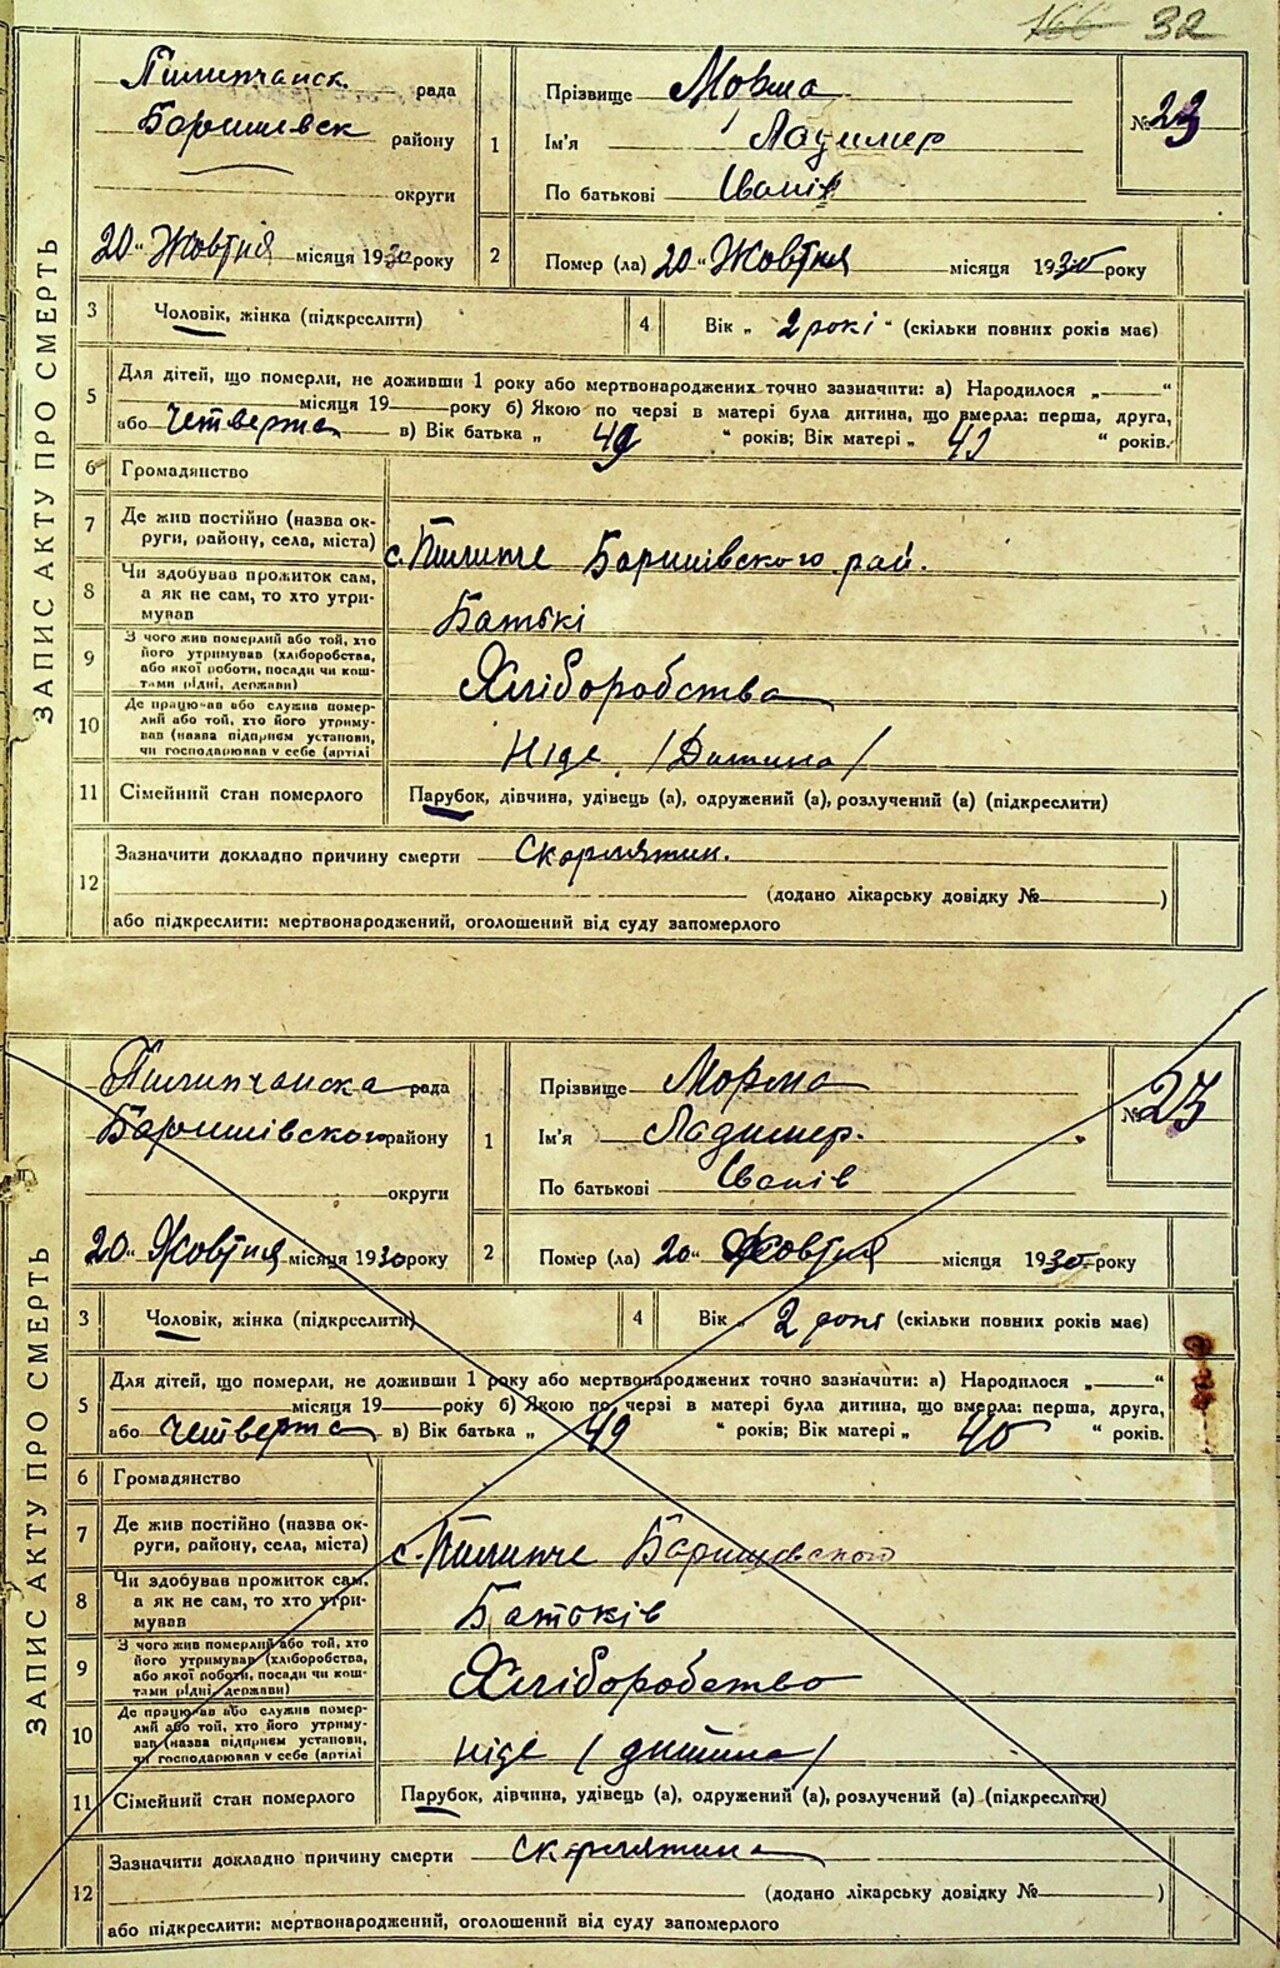 166 32
ЗАПИС АКТУ ПРО СМЕРТЬ
Пилипчанск. рада
Баришевск району
округи
20 " Жовтня місяця 1930 року
1 Прізвище Морма
Ім'я Ладимер
По батькові Іванів
№ 23
2 Помер (ла) 20 " Жовтня місяця 1930 року
3 Чоловік, жінка (підкреслити)
4 Вік „ 2 рокі " (скільки повних років має)
5 Для дітей, що померли, не доживши 1 року або мертвонароджених точно зазначити: а) Народилося „ — "
місяця 19 — року б) Якою по черзі в матері була дитина, що вмерла: перша, друга,
або Четверта в) Вік батька „ 49 " років; Вік матері „ " років.
6 Громадянство
7 Де жив постійно (назва ок-
руги, району, села, міста) с. Пилипче Баришівского рай.
8 Чи здобував прожиток сам,
а як не сам, то хто утри-
мував Батькі
9 З чого жив померлий або той, хто
його утримував (хліборобства,
або якої роботи, посади чи кош-
тами рідні, держави) Хліборобства
10 Де працював або служив помер-
лий або той, хто його утриму-
вав (назва підприєм установи,
чи господарював у себе (артілі Ніде /Дитина/
11 Сімейний стан померлого Парубок, дівчина, удівець (а), одружений (а), розлучений (а) (підкреслити)
12 Зазначити докладно причину смерти Скарлятин.
(додано лікарську довідку № )
або підкреслити: мертвонароджений, оголошений від суду запомерлого
ЗАПИС АКТУ ПРО СМЕРТЬ
Пилипчанска рада
Баришівского району
округи
20 " Жовтня місяця 1930 року
1 Прізвище Морма
Ім'я Ладимер.
По батькові Іванів
№ 23
2 Помер (ла) 20 " Жовтня місяця 1930 року
3 Чоловік, жінка (підкреслити)
4 Вік „ 2 роки (скільки повних років має)
5 Для дітей, що померли, не доживши 1 року або мертвонароджених точно зазначити: а) Народилося „ — "
місяця 19 — року б) Якою по черзі в матері була дитина, що вмерла: перша, друга,
або Четверта в) Вік батька „ 49 " років; Вік матері „ 40 " років.
6 Громадянство
7 Де жив постійно (назва ок-
руги, району, села, міста) с. Пилипче
8 Чи здобував прожиток сам,
а як не сам, то хто утри-
мував Батьків
9 З чого жив померлий або той, хто
його утримував (хліборобства,
або якої роботи, посади чи кош-
тами рідні, держави) Хліборобство
10 Де працював або служив помер-
лий або той, хто його утриму-
вав (назва підприєм установи,
чи господарював у себе (артілі ніде (дитина)
11 Сімейний стан померлого Парубок, дівчина, удівець (а), одружений (а), розлучений (а) (підкреслити)
12 Зазначити докладно причину смерти Скарлятина
(додано лікарську довідку № )
або підкреслити: мертвонароджений, оголошений від суду запомерлого